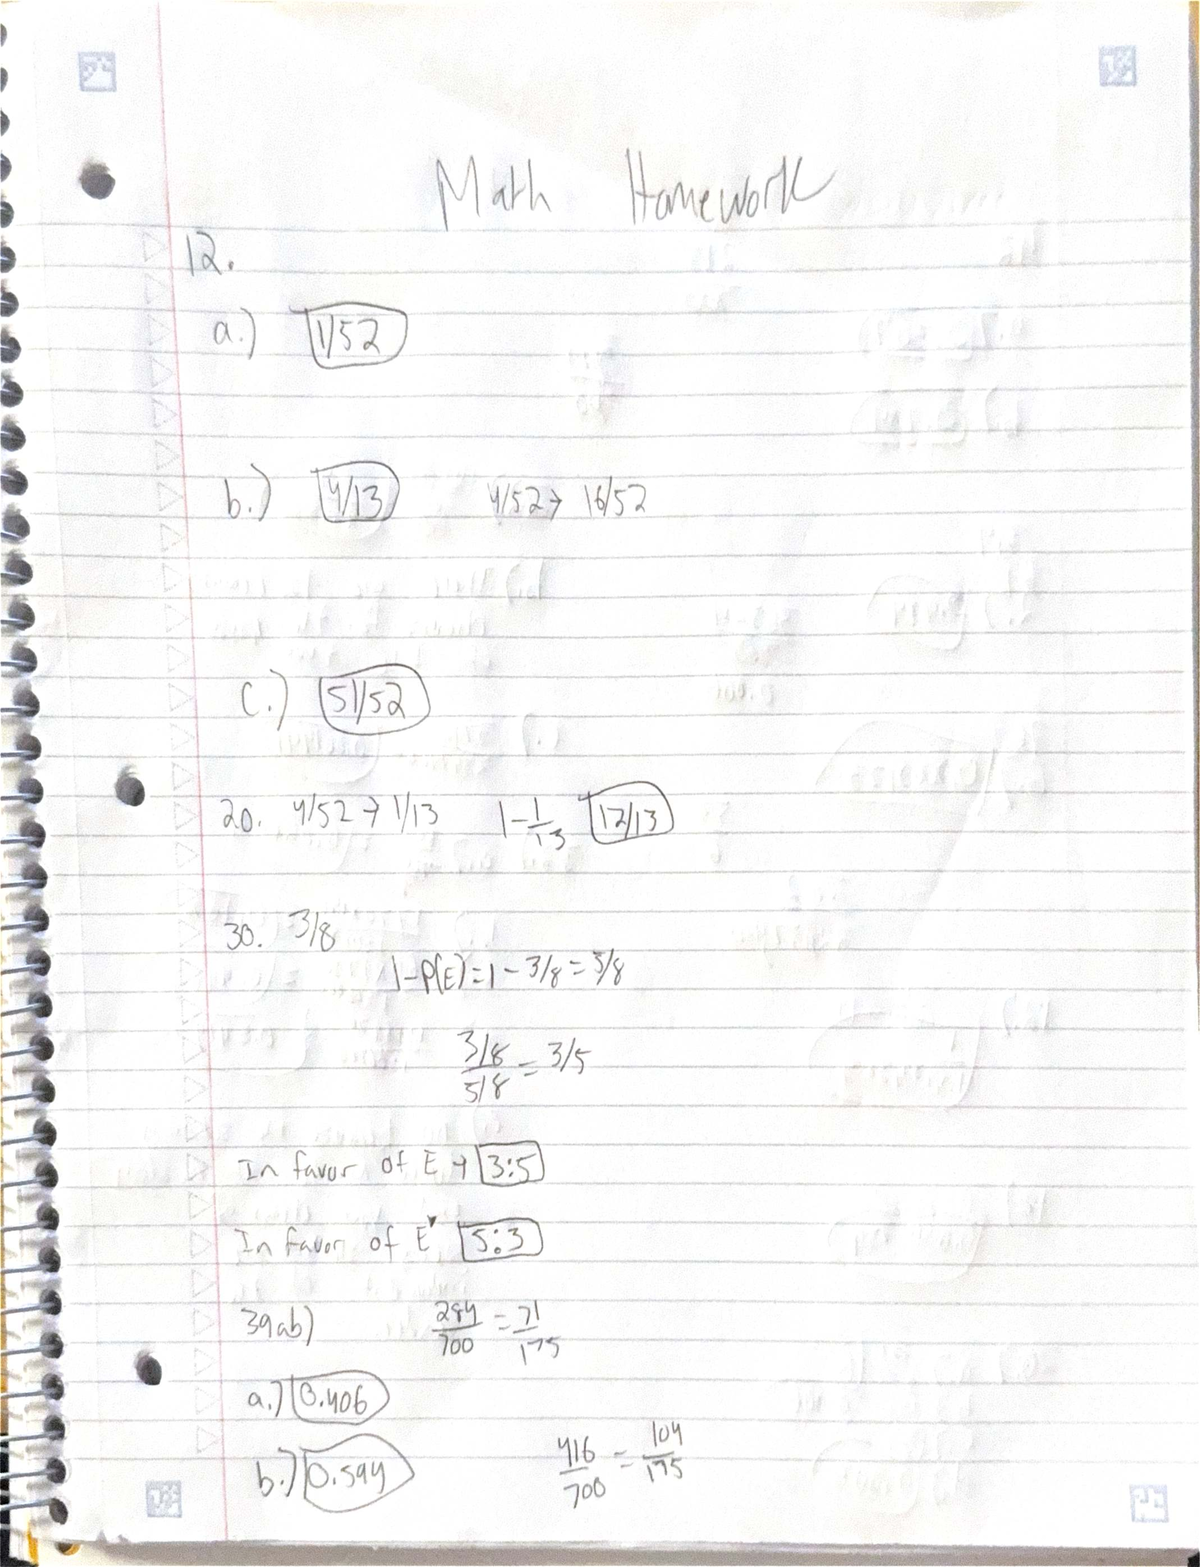 Math Homework
12.
a.) 1/52
b.) 4/13 4/52 → 16/52
c.) 51/52
20. 4/52 → 1/13 1-1/13 12/13
30. 3/8
1-P(E)=1-3/8=5/8
3/8 / 5/8 = 3/5
In favor of E → 3:5
In favor of E' 5:3
39ab) 284/700 = 71/175
a.) 0.406
b.) 0.594 416/700 = 104/175